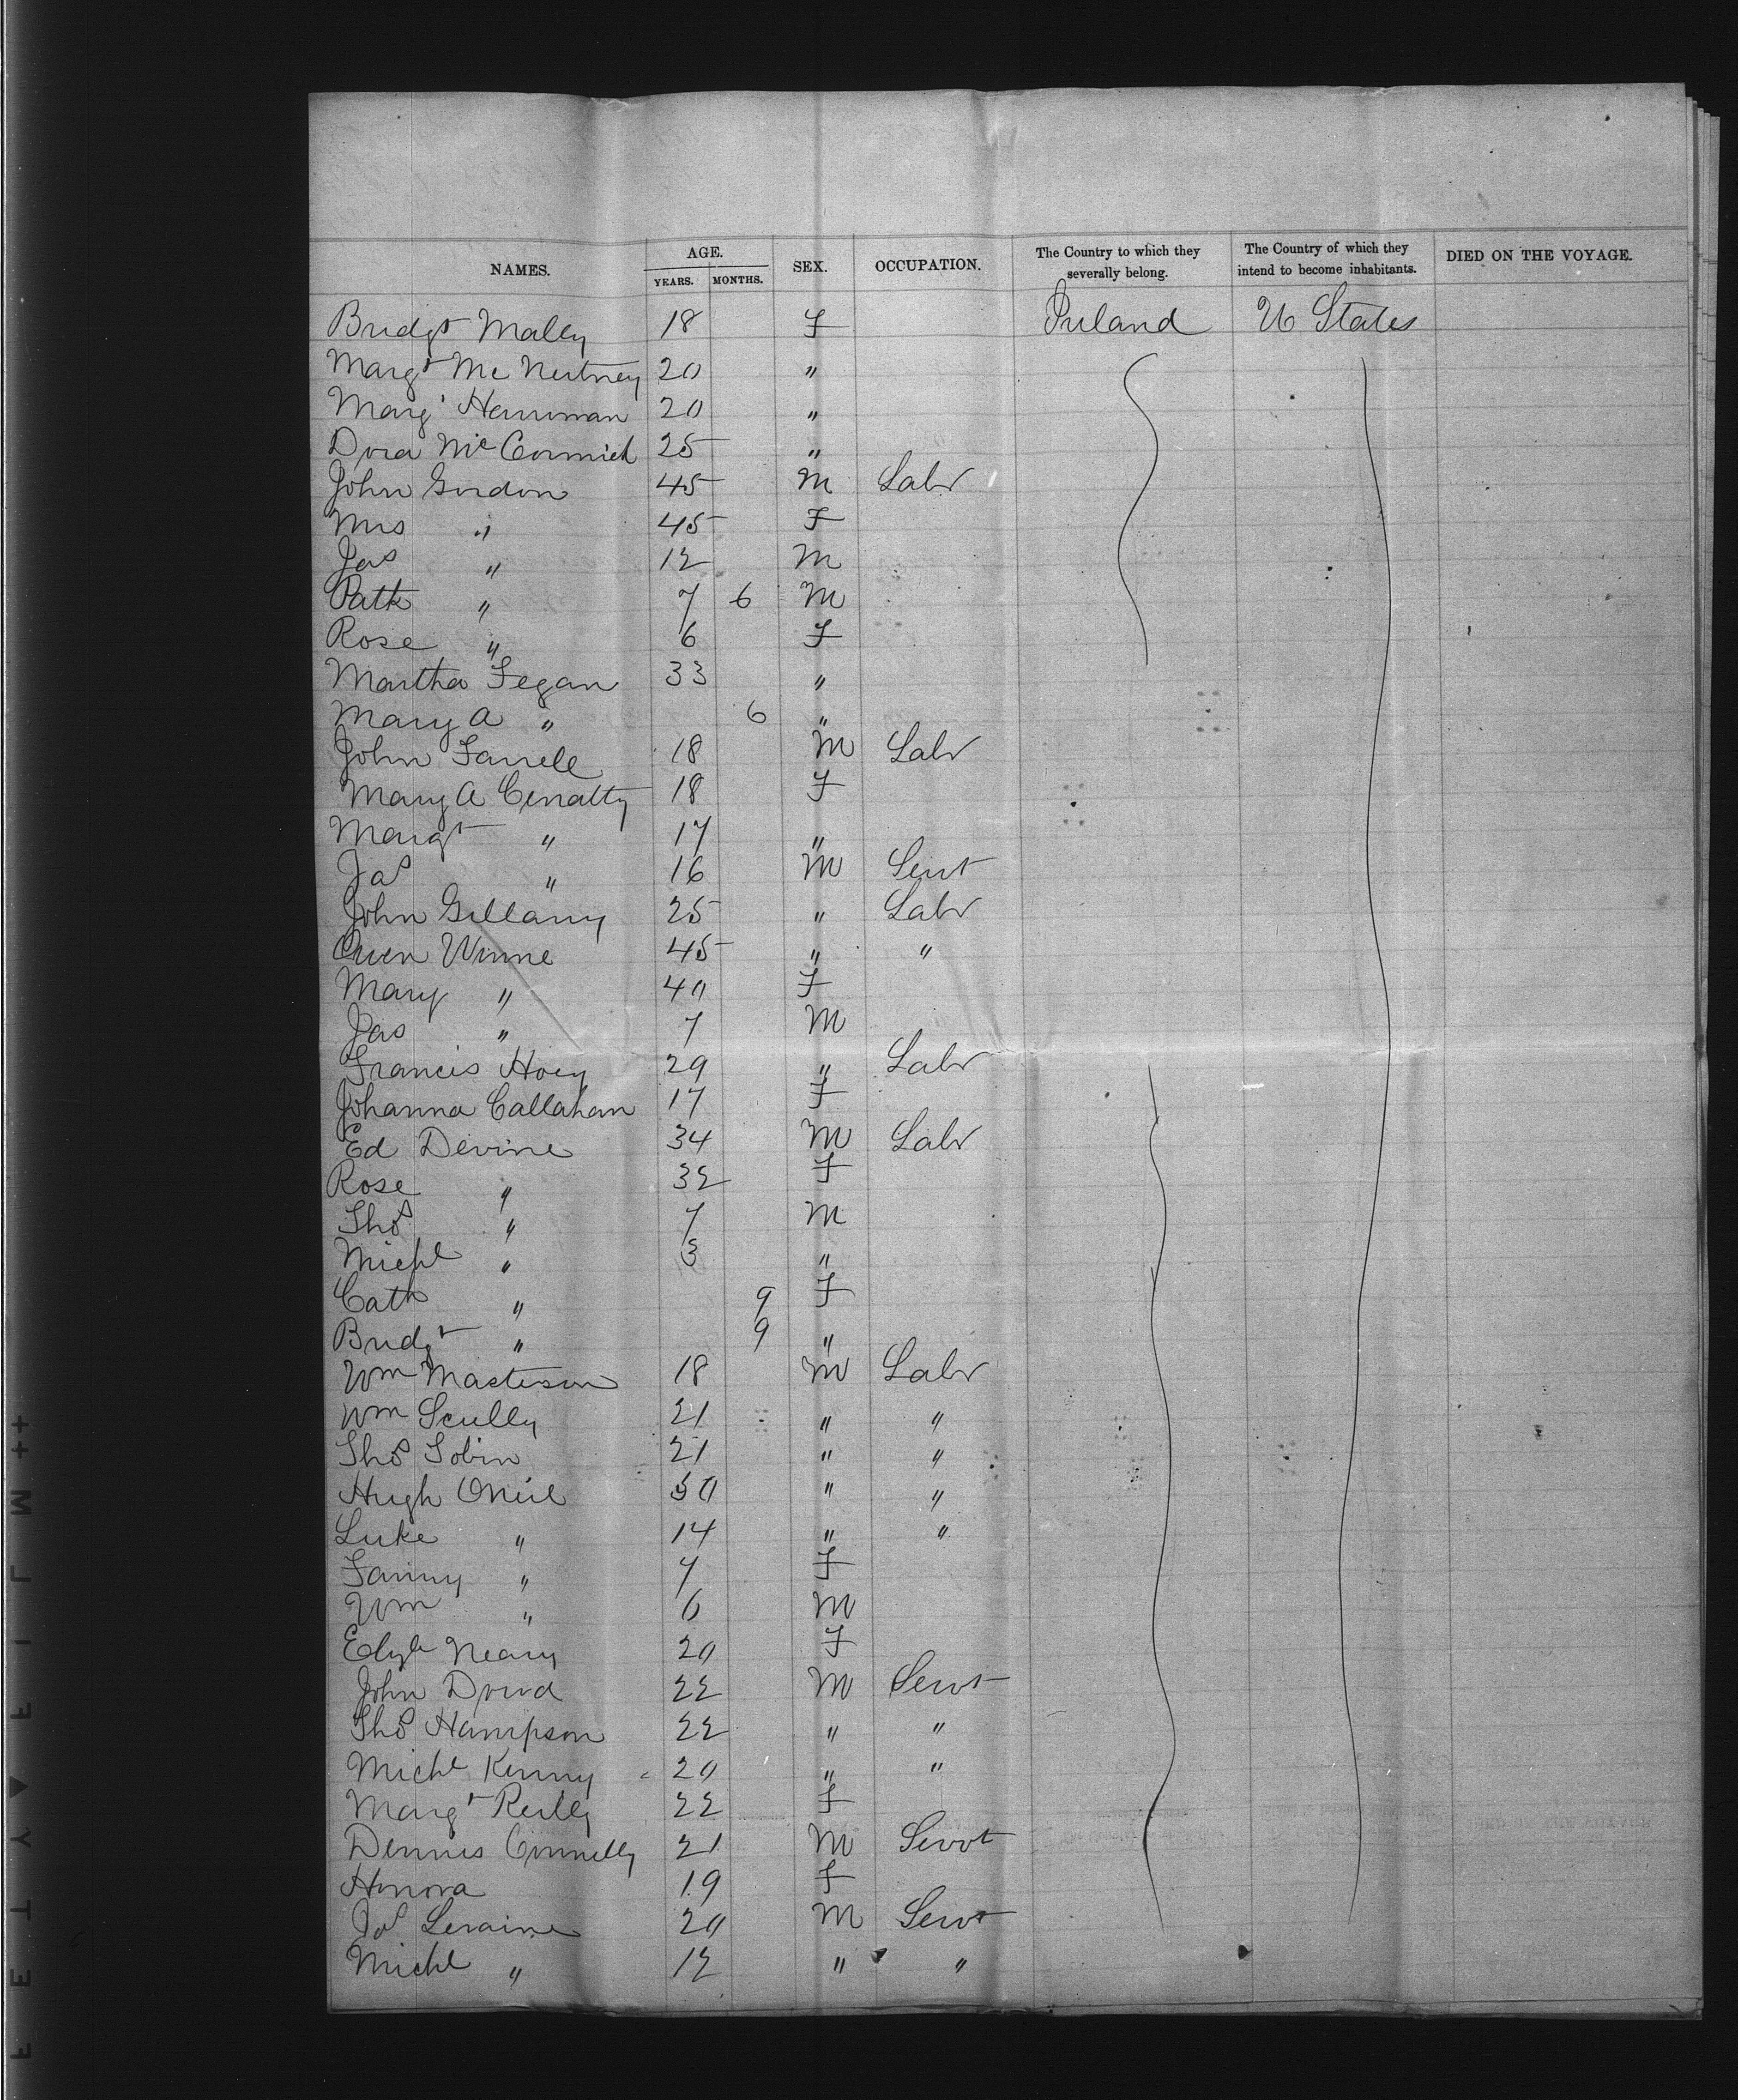 NAMES. AGE. YEARS. MONTHS. SEX. OCCUPATION. The Country to which they severally belong. The Country of which they intend to become inhabitants. DIED ON THE VOYAGE.
Bridgt Mally 18 F Ireland U States
Margt Mc Nertney 20 "
Margt Hanniman 20 "
Dora McCormick 25 "
John Gordon 45 M Labr
Mrs " 45 F
Jas " 12 M
Patk " 7 6 M
Rose " 6 F
Martha Fegan 33 "
Mary A " 6 "
John Farrell 18 M Labr
Mary A 18 F
Margt " 17 "
Jas " 16 M Servt
John 25 " Labr
Owen Winne 45 " "
Mary " 40 F
Jas " 7 M
Francis Hoey 29 " Labr
Johanna Callahan 17 F
Ed Devine 34 M Labr
Rose " 32 F
Thos " 7 M
Michl " 3 "
Cath " 9 F
Bridgt " 9 "
Wm Masterson 18 M Labr
Wm Scully 21 " "
Thos Tobin 21 " "
Hugh ONeil 50 " "
Luke " 14 " "
Fanny " 7 F
Wm " 6 M
Neary 20 F
John Dowd 22 M Servt
Thos Hampson 22 " "
Michl Kenny 20 " "
Margt Reilly 22 F
Dennis Connelly 21 M Servt
Honora 19 F
Jas 20 M Servt
Michl " 12 " "
FILMTEK